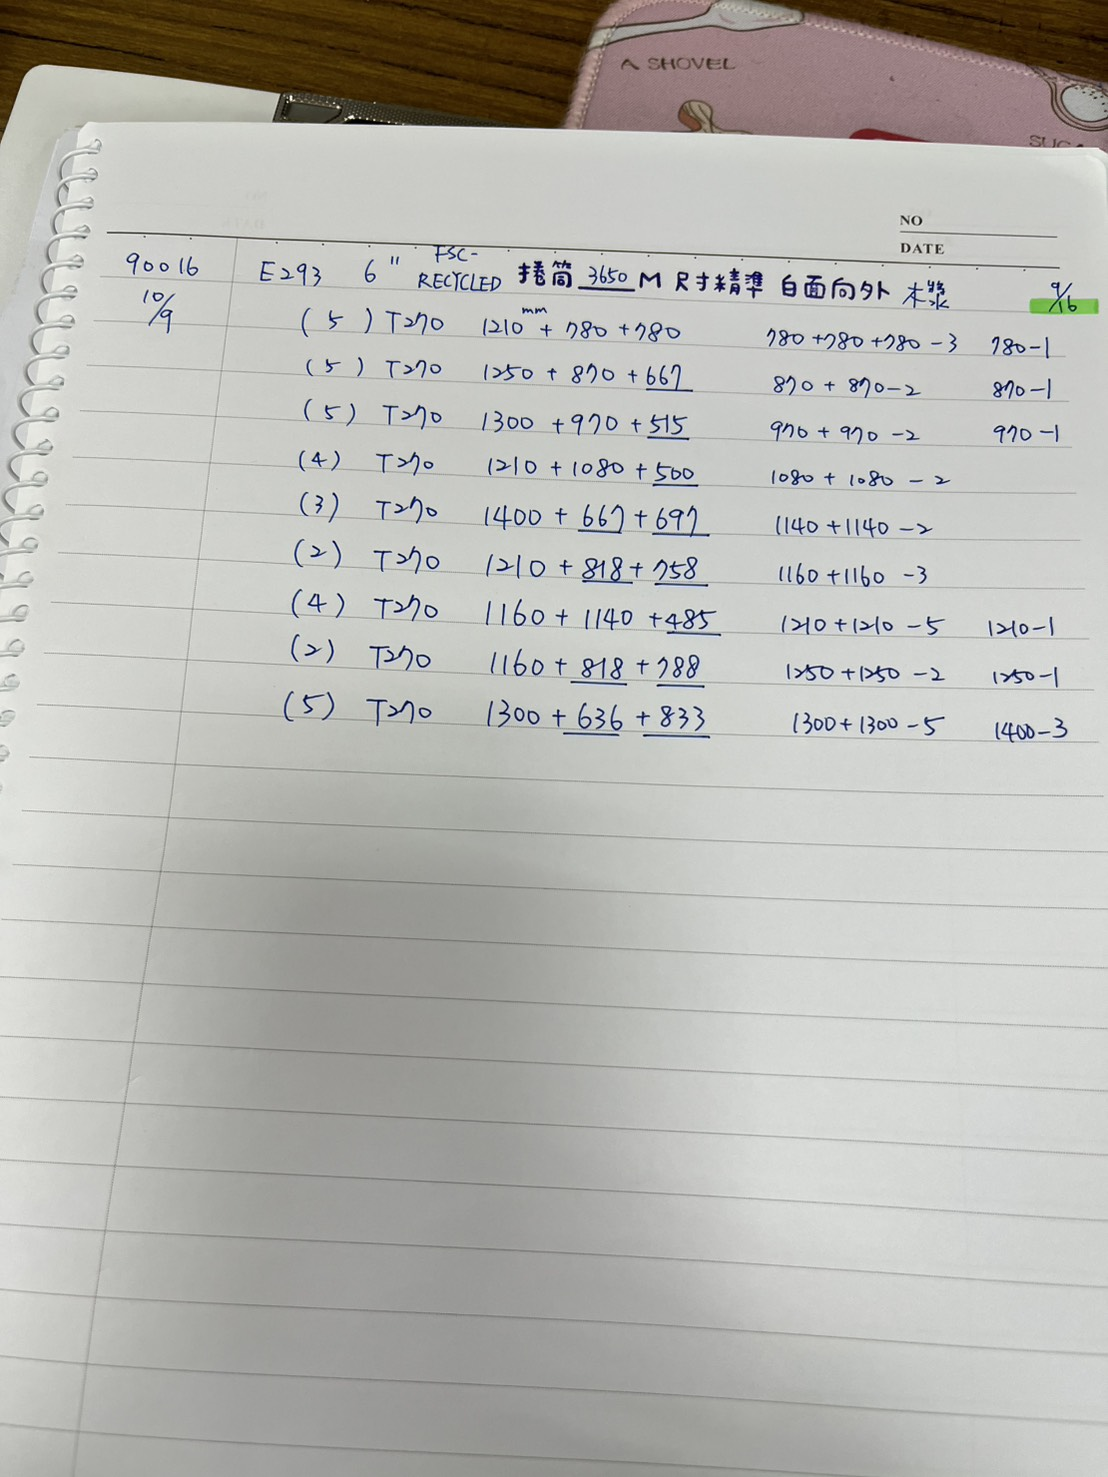 A SHOVEL
NO
DATE
90016 E293 6" FSC-RECYCLED 捲筒 3650 M 尺寸精準 白面向外 木漿 9/16
10/9 (5) T270 1210mm + 780 + 780 780 + 780 + 780 - 3 780 - 1
(5) T270 1250 + 870 + 667 870 + 870 - 2 870 - 1
(5) T270 1300 + 970 + 515 970 + 970 - 2 970 - 1
(4) T270 1210 + 1080 + 500 1080 + 1080 - 2
(3) T270 1400 + 667 + 697 1140 + 1140 - 2
(2) T270 1210 + 818 + 758 1160 + 1160 - 3
(4) T270 1160 + 1140 + 485 1210 + 1210 - 5 1210 - 1
(2) T270 1160 + 818 + 788 1250 + 1250 - 2 1250 - 1
(5) T270 1300 + 636 + 833 1300 + 1300 - 5 1400 - 3